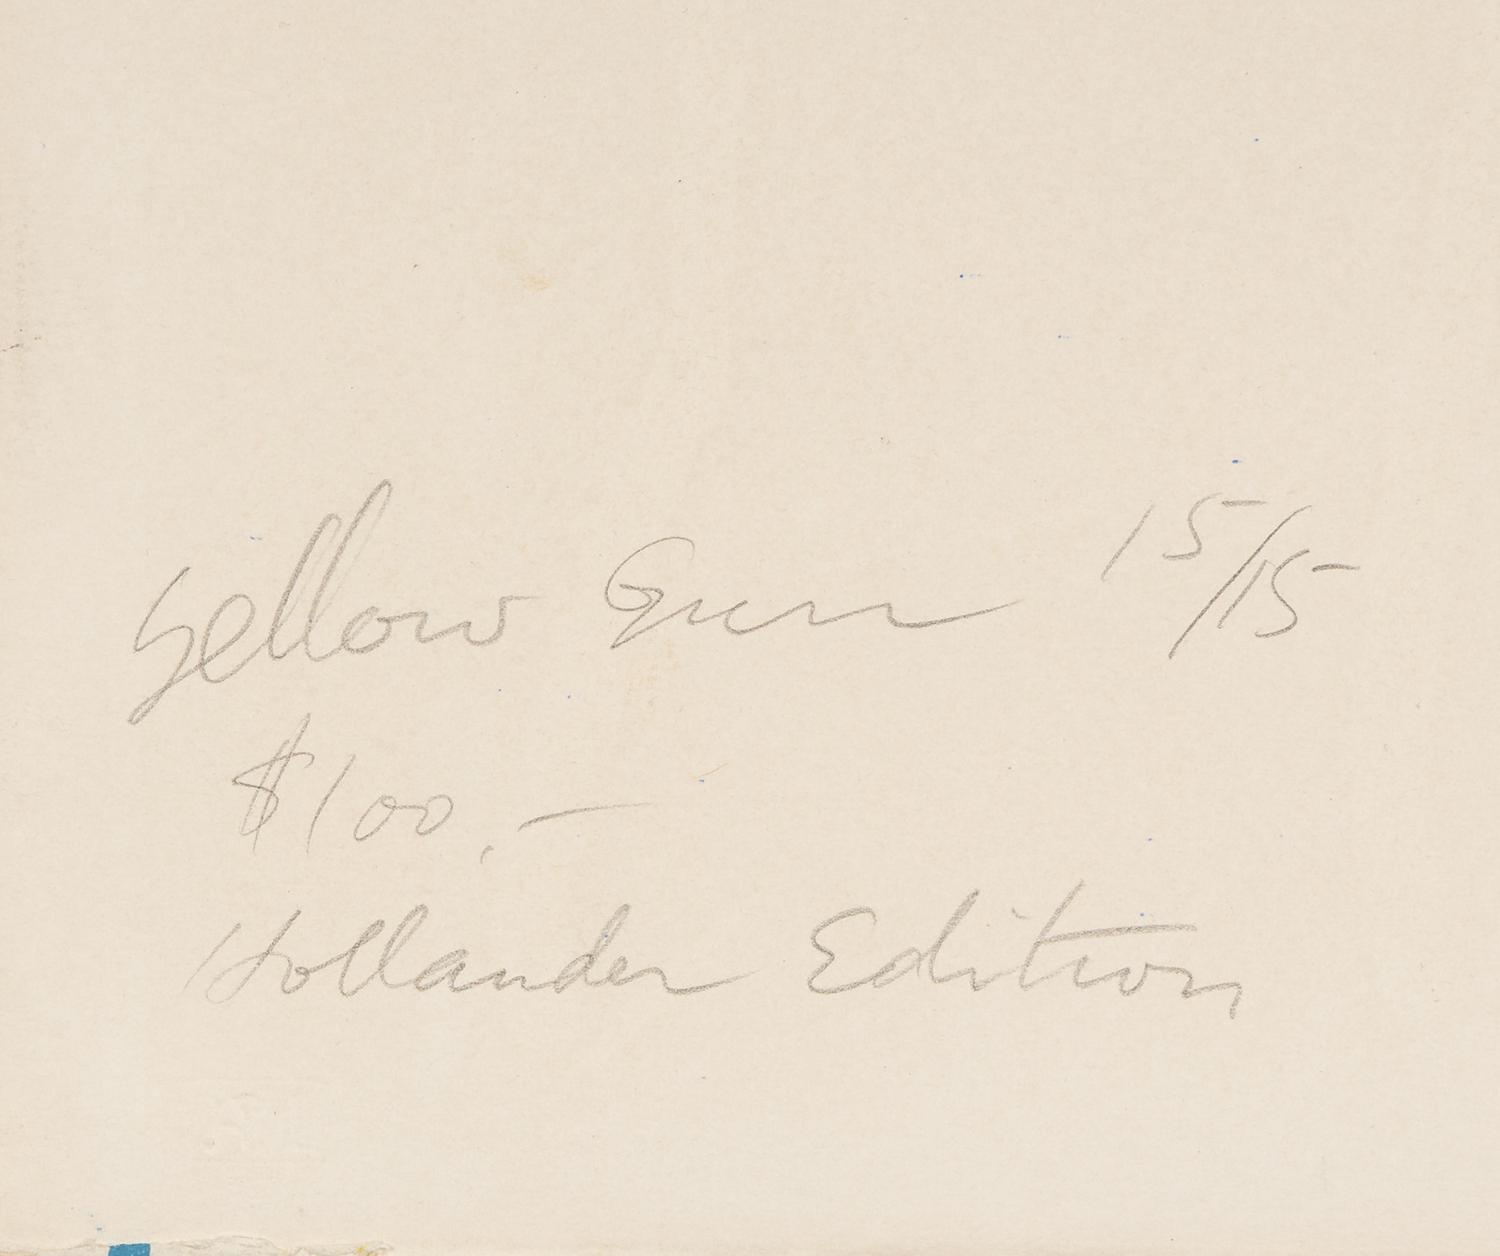 Yellow Gun 15/15
$100.—
Hollander Edition